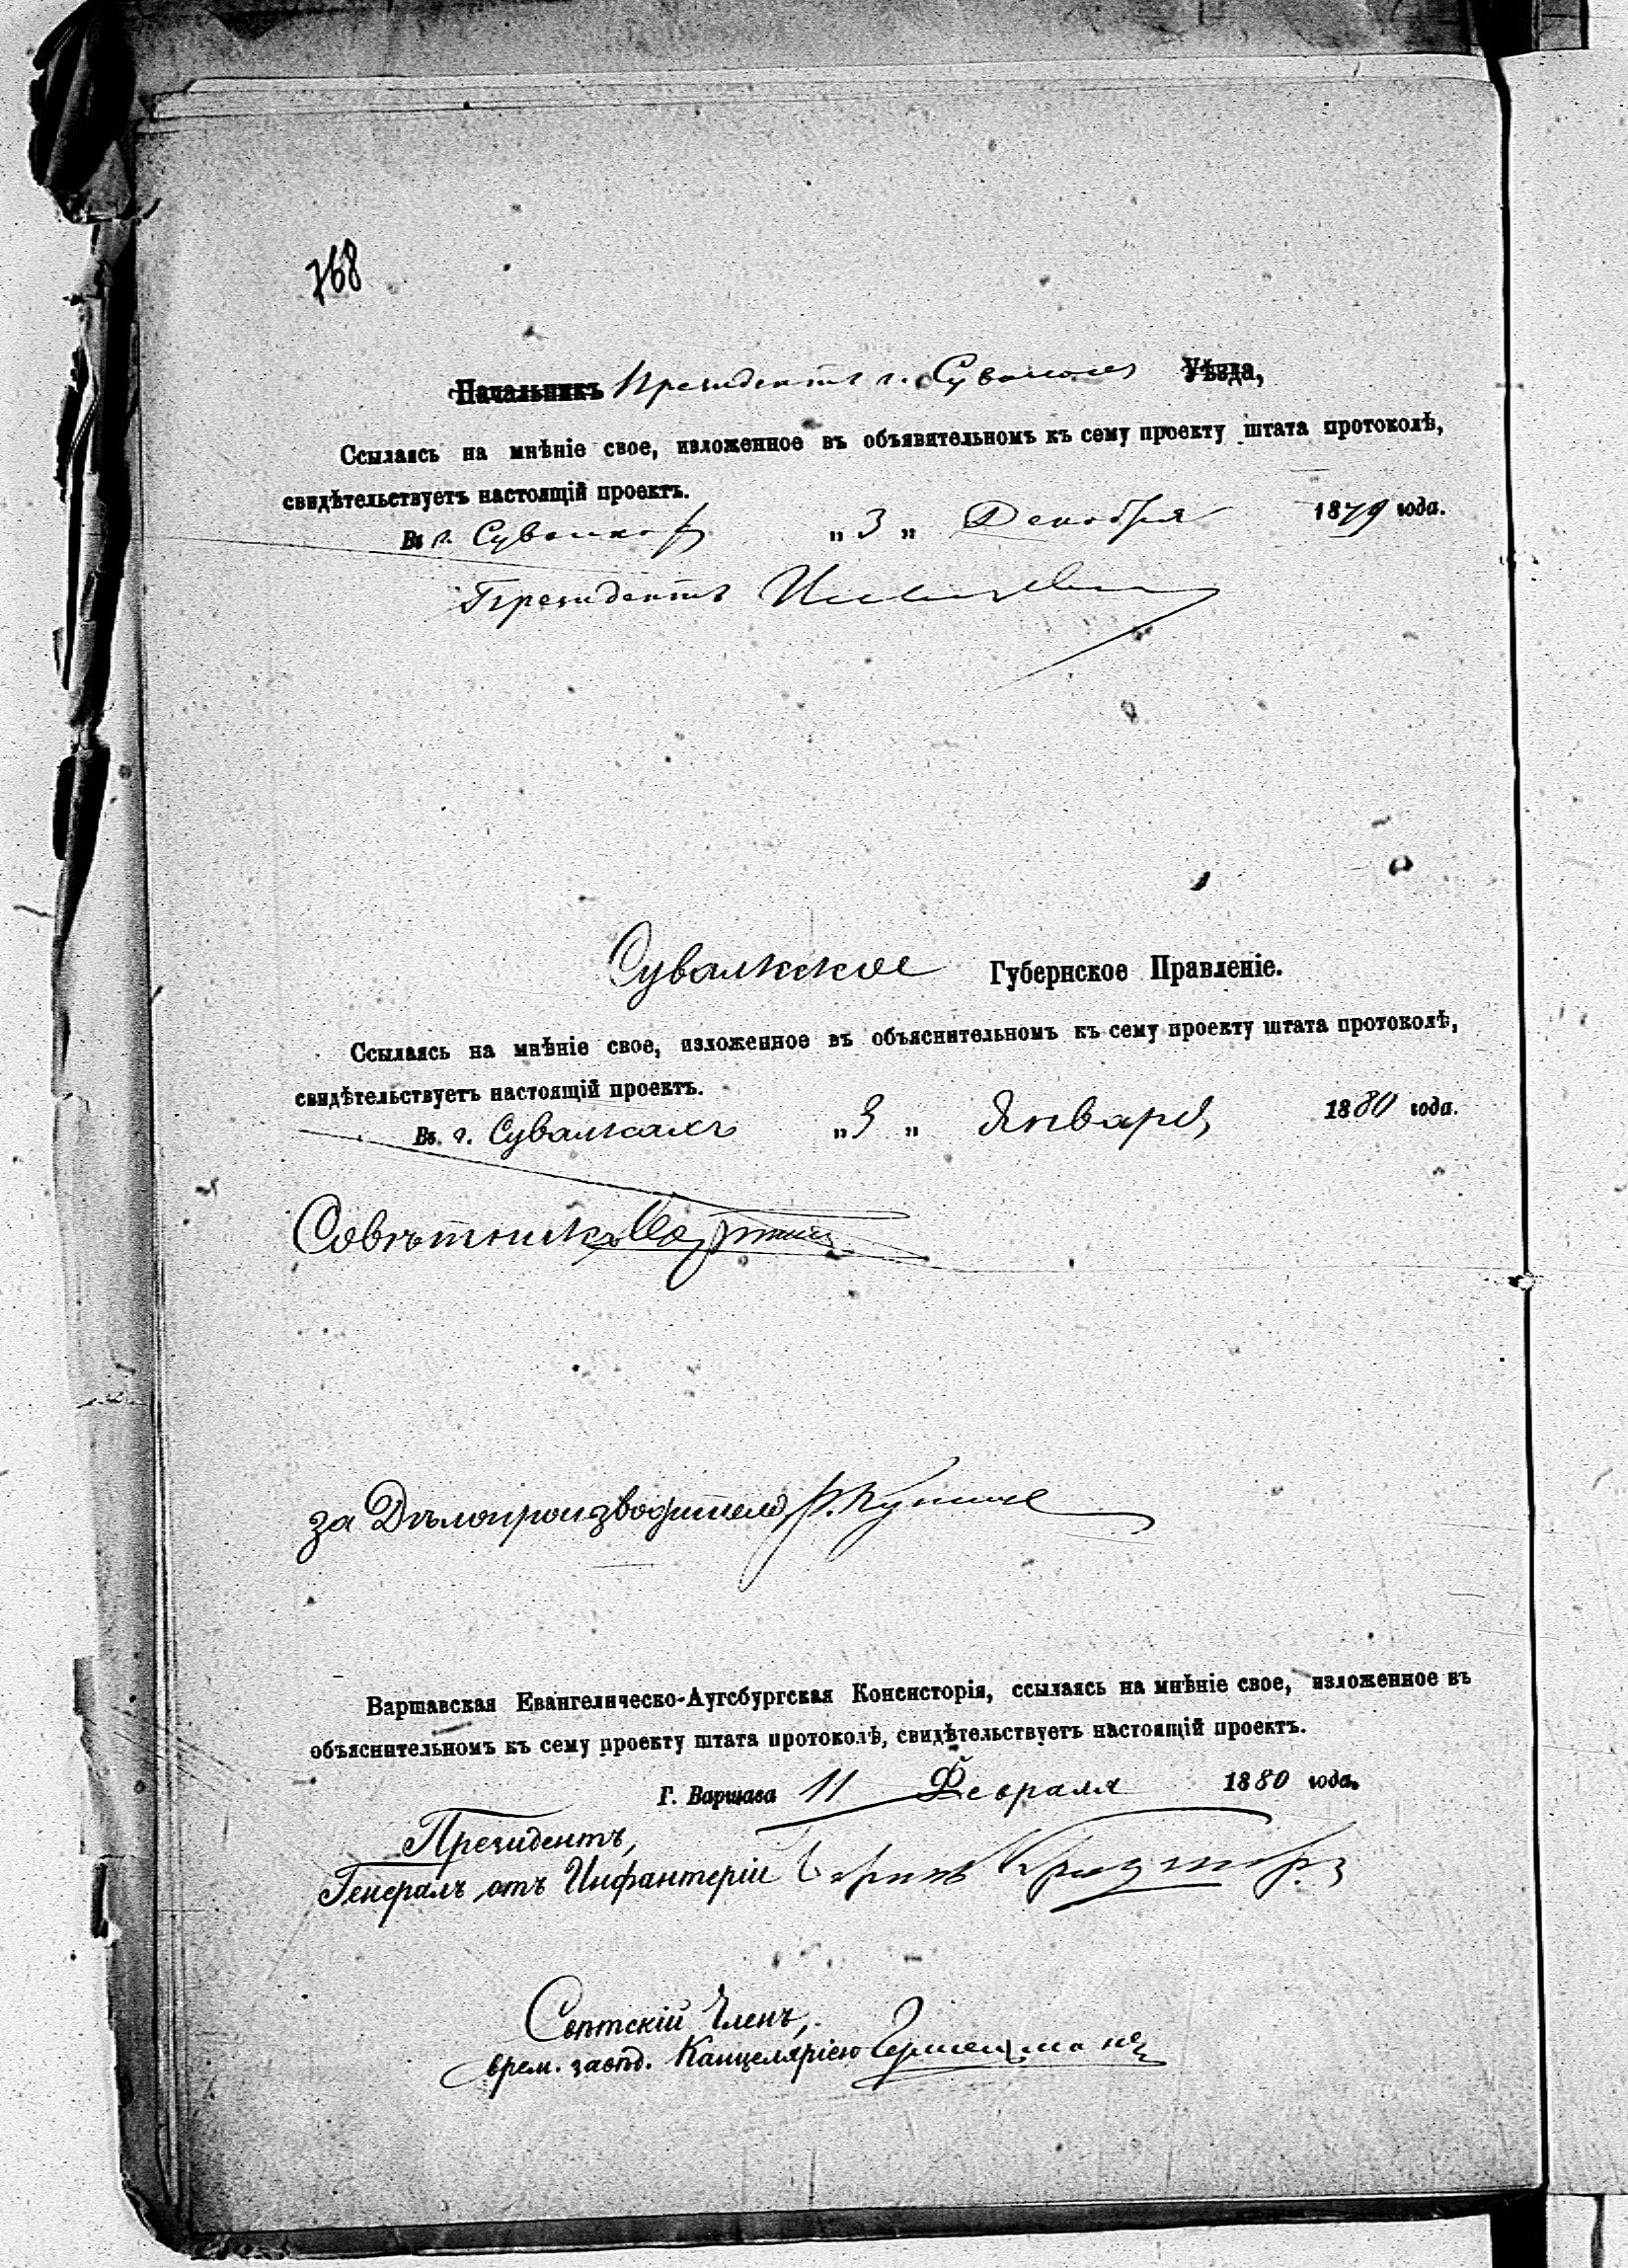 768
Начальникъ Президентъ г. Сувалокъ Уѣзда,
Ссылаясь на мнѣніе свое, изложенное въ объявительномъ къ сему проекту штата протоколѣ,
свидѣтельствуетъ настоящій проектъ.
Въ г. Сувалкахъ „3„ Декабря 1879 года.
Президентъ
Сувалкское Губернское Правленіе.
Ссылаясь на мнѣніе свое, изложенное въ объяснительномъ къ сему проекту штата протоколѣ,
свидѣтельствуетъ настоящій проектъ.
Въ г. Сувалкахъ „3„ Января 1880 года.
Совѣтникъ
за Дѣлопроизводителя
Варшавская Евангелическо-Аугсбургская Консисторія, ссылаясь на мнѣніе свое, изложенное въ
объяснительномъ къ сему проекту штата протоколѣ, свидѣтельствуетъ настоящій проектъ.
Г. Варшава 11 Февраля 1880 года.
Президентъ,
Генералъ отъ Инфантеріи Баронъ
Свѣтскій Членъ,
врем. завѣд. Канцеляріею